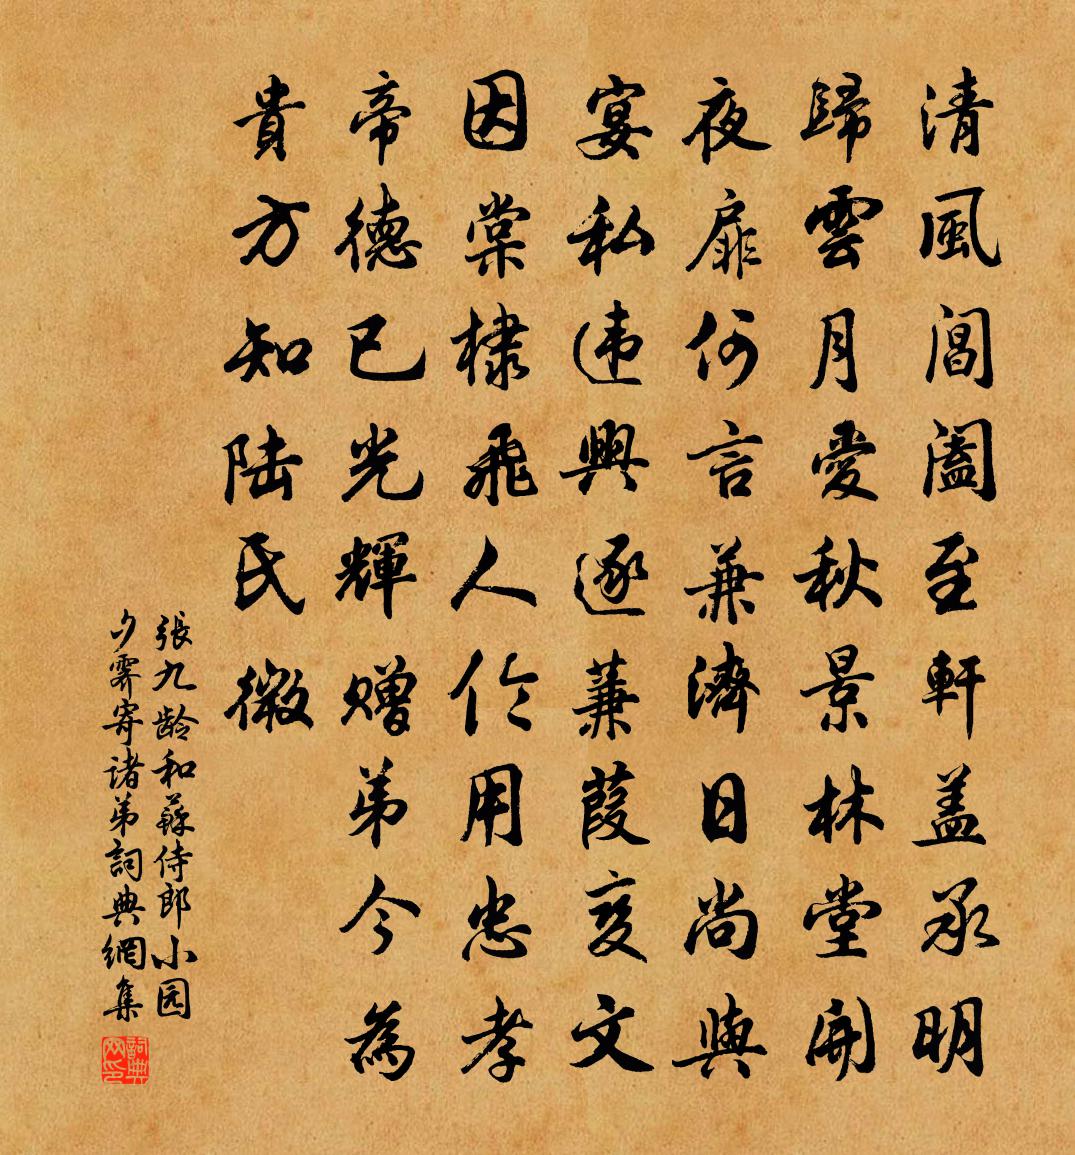 清風閶闔至軒盖承明
歸雲月愛秋景林堂開
夜扉何言兼濟日尚與
宴私違興逐蒹葭变文
因棠棣飛人伦用忠孝
帝德已光輝赠弟今為
貴方知陆氏微
張九龄和蘇侍郎小园
夕霽寄諸弟詞典網集
詞典网印